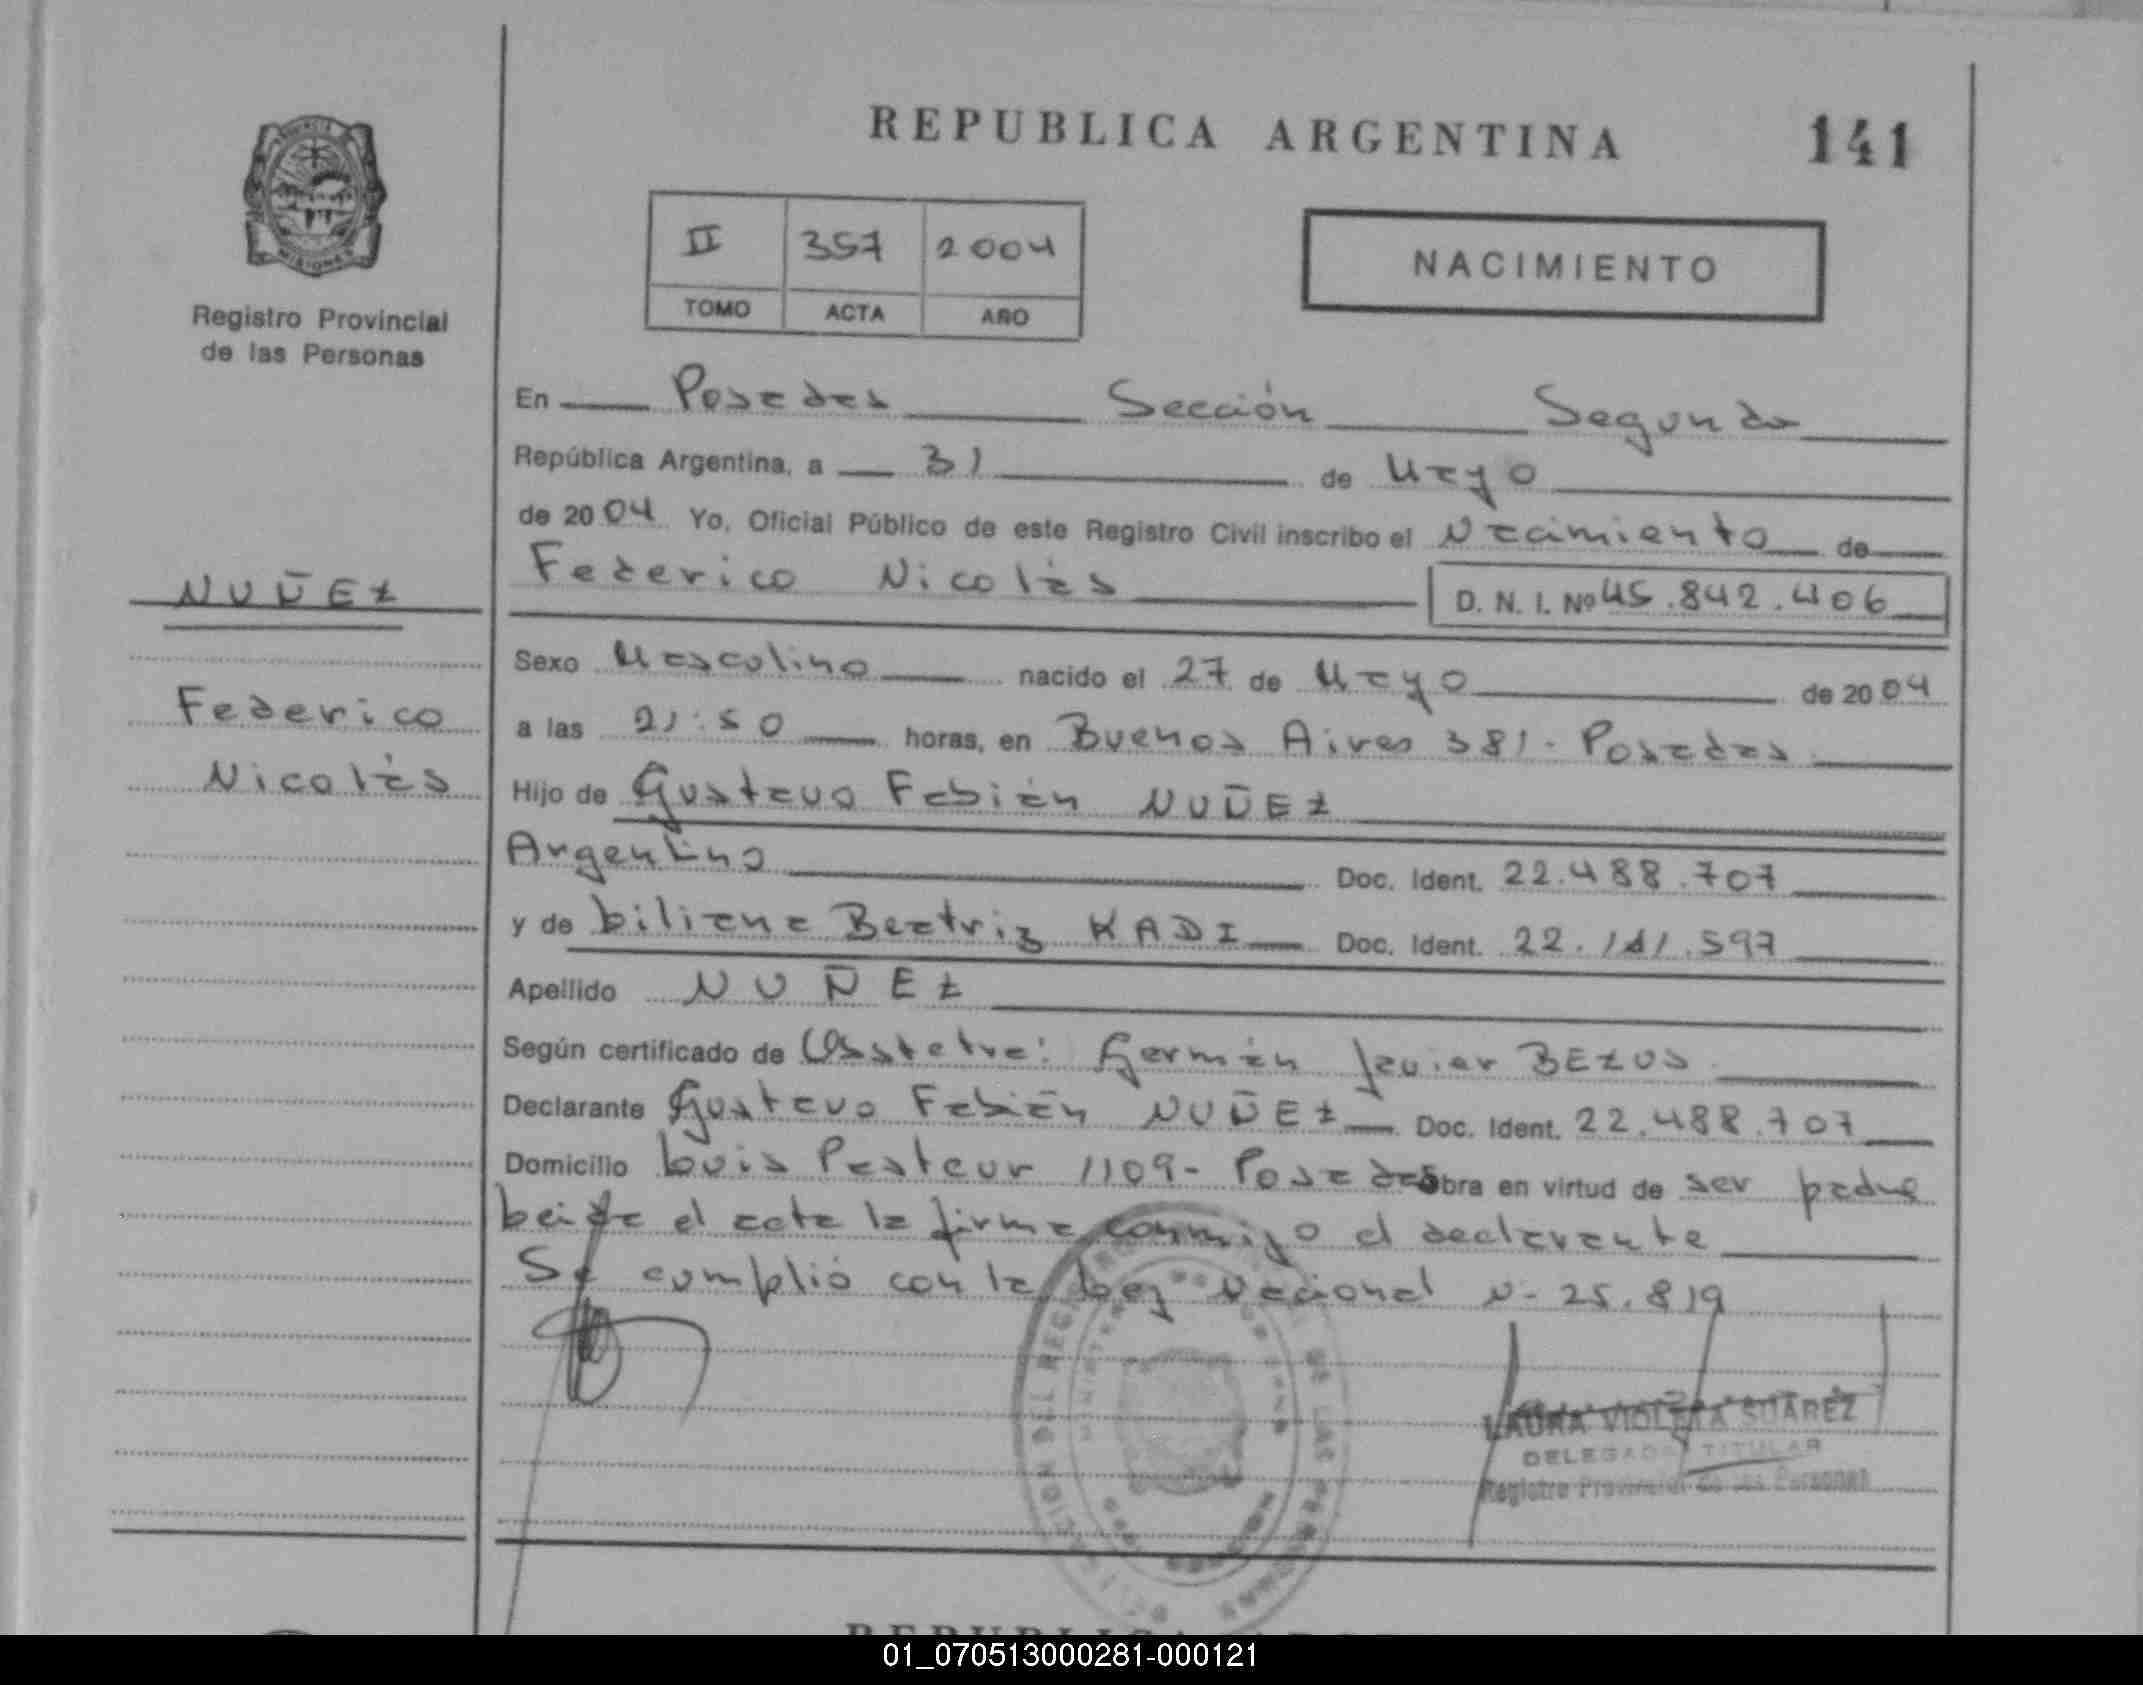 REPUBLICA ARGENTINA
141
MISIONES
Registro Provincial
de las Personas
II 357 2004
TOMO ACTA AÑO
NACIMIENTO
En Posadas Sección Segunda
República Argentina, a 31 de Mayo
de 2004 Yo, Oficial Público de este Registro Civil inscribo el Nacimiento de
Federico Nicolás D. N. I. Nº 45.842.406
NUÑEZ
Federico
Nicolás
Sexo Masculino nacido el 27 de Mayo de 2004
a las 21:50 horas, en Buenos Aires 381 - Posadas
Hijo de Gustavo Fabián NUÑEZ
Argentino Doc. Ident. 22.488.707
y de Liliana Beatriz KADI Doc. Ident. 22.141.597
Apellido NUÑEZ
Según certificado de Obstetra: Germán Javier BEZUS
Declarante Gustavo Fabián NUÑEZ Doc. Ident. 22.488.707
Domicilio Luis Pasteur 1109 - Posadas Obra en virtud de ser padre
Leída el acta la firma conmigo el declarante
Se cumplió con la Ley Nacional N- 25.819
LAURA VIOLETA SUAREZ
DELEGADA TITULAR
Registro Provincial de las Personas
01_070513000281-000121